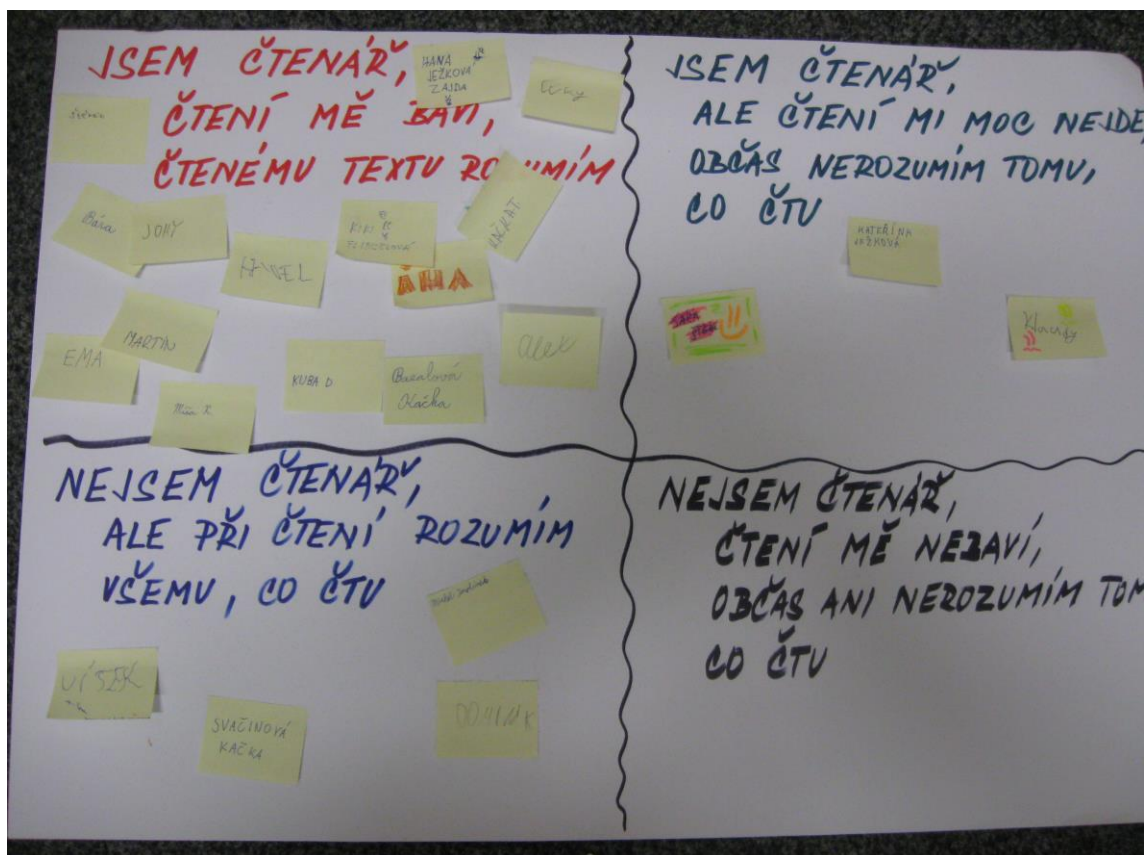 JSEM ČTENÁŘ,
ČTENÍ MĚ BAVÍ,
ČTENÉMU TEXTU ROZUMÍM
HANA
JEŽKOVÁ
ZAJDA
Bára
JONY
KIKI
HAVEL
ÁHA
EMA
MARTIN
Míša K.
KUBA D.
Kačka
alex
JSEM ČTENÁŘ,
ALE ČTENÍ MI MOC NEJDE,
OBČAS NEROZUMÍM TOMU,
CO ČTU
KATEŘINA
JEŽKOVÁ
NEJSEM ČTENÁŘ,
ALE PŘI ČTENÍ ROZUMÍM
VŠEMU, CO ČTU
SVAČINOVÁ
KAČKA
DOMINIK
NEJSEM ČTENÁŘ,
ČTENÍ MĚ NEBAVÍ,
OBČAS ANI NEROZUMÍM TOM
CO ČTU